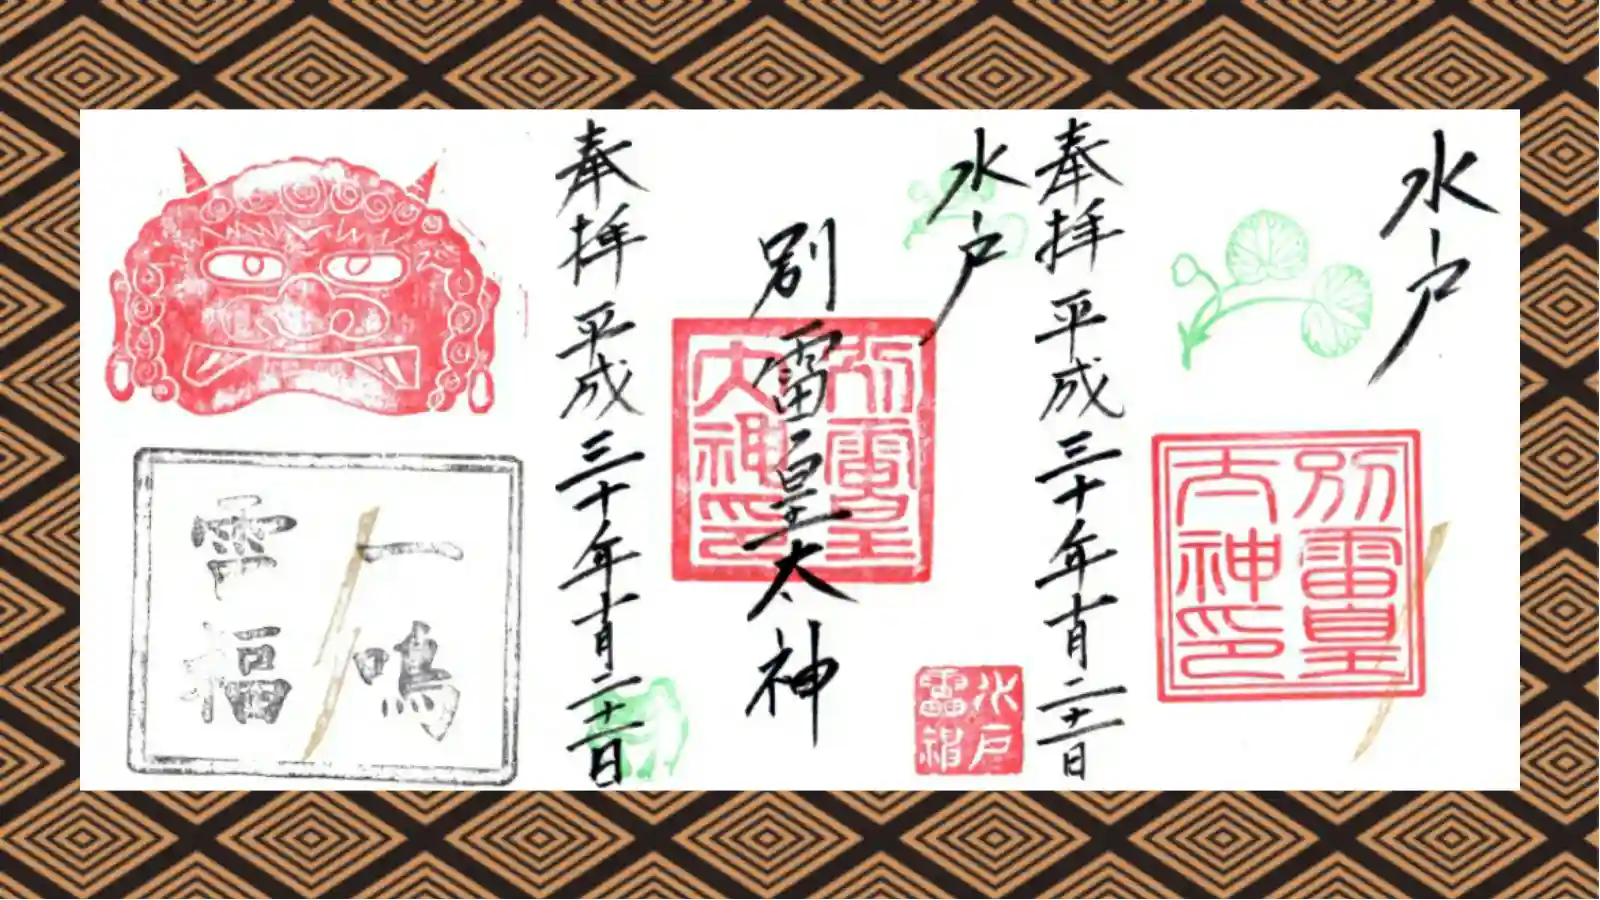 水戸
別雷皇
太神印
奉拝 平成三十年十一月二十二日
水戸
別雷皇太神
別雷皇
大神印
水戸
雷神
奉拝 平成三十年十一月二十二日
一鳴
雷福